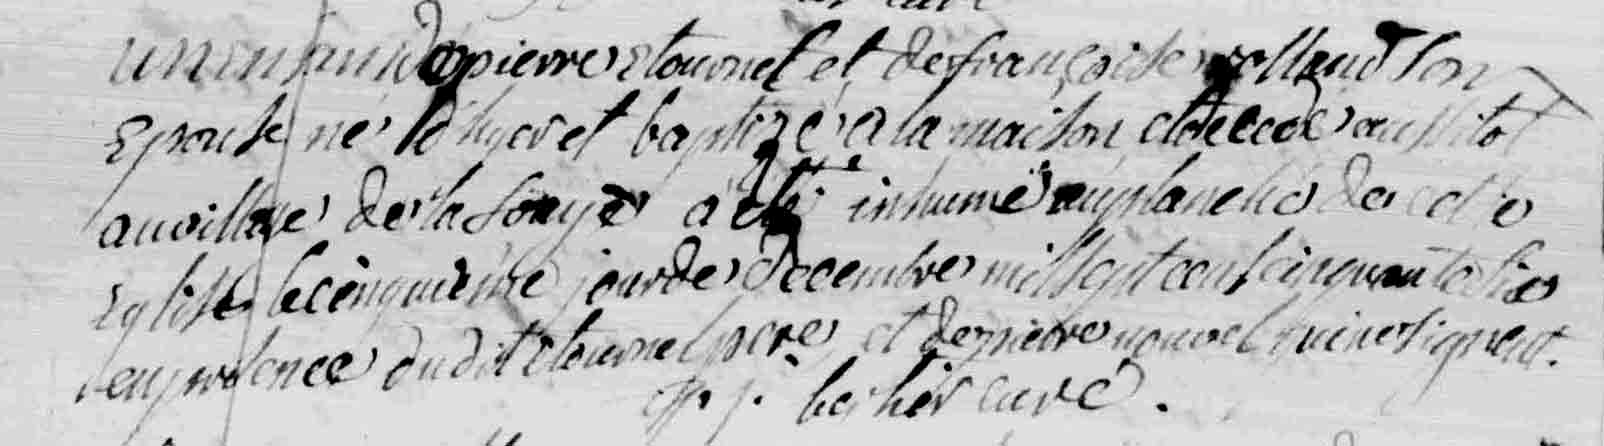 un enfant de pierre etournel et de françoise rolland son
Epouse né d'hyer et baptizé a la maison et decedé aussitot
au village de la a été inhumé au planché de cette
Eglise le cinquieme jour de decembre mil sept cent cinquante six
en presence dudit etournel pere et de pierre nouvel qui ne signent.
curé.